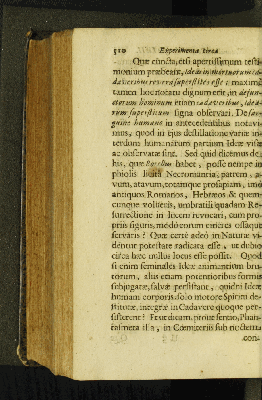 510 Experimenta circa
Quæ cuncta, etsi apertissimum testi-
monium præbeant, ideas in mortuorum ca-
daveribus revera superstites esse: maximè
tamen hoc notatu dignum est, in defun-
ctorum hominum etiam cadaveribus, idea-
rum superstitum signa observari. De san-
guine humano in antecedentibus notavi-
mus, quod in ejus destillatione variæ in-
terdum humanarum partium Ideæ visæ
ac observatæ sint. Sed quid dicemus de
his, quæ Borellus habet, posse nempe in
phiolis licitâ Necromantiâ, patrem, a-
vum, atavum, totamque prosapiam, imò
antiquos Romanos, Hebræos & quem-
cunque volueris, umbratili quadam Re-
surrectione in lucem revocari, cum pro-
priis figuris, modò eorum cineres ossaque
servaris? Quæ certè adeò in Naturæ vi-
dentur potestate radicata esse, ut dubio
circa hæc nullus locus esse possit. Quod
si enim seminales Ideæ animantium bru-
torum, alias etiam potentioribus formis
subjugatæ, salvæ persistant, quidni Ideæ
humani corporis solo motore Spiritu de-
stitutæ, integræ in Cadavere quoque per-
sisterent? Et ut dicam, prout sentio, Phan-
tasmata illa, in Cœmiteriis sub noctem a
con-